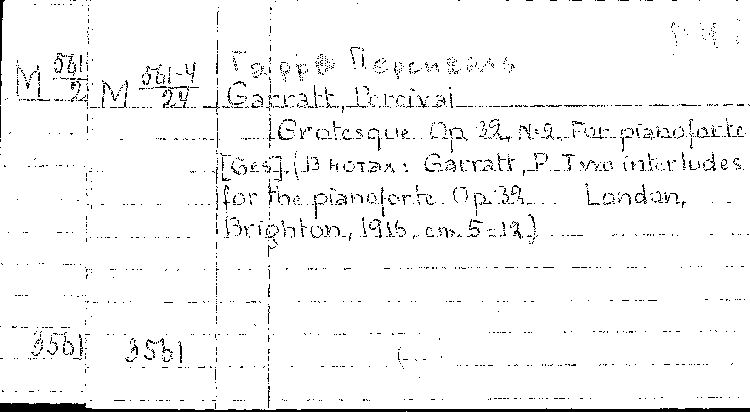 М 561/2 М 561-4/27 Гаррат Персиваль
Garratt, Percival
Grotesque. Op. 32, N:2. For pianoforte
[Ges]. (В нотах: Garratt, P. Two interludes
for the pianoforte. Op. 32. London,
Brighton, 1916. cm. 5-12)
3561 3561